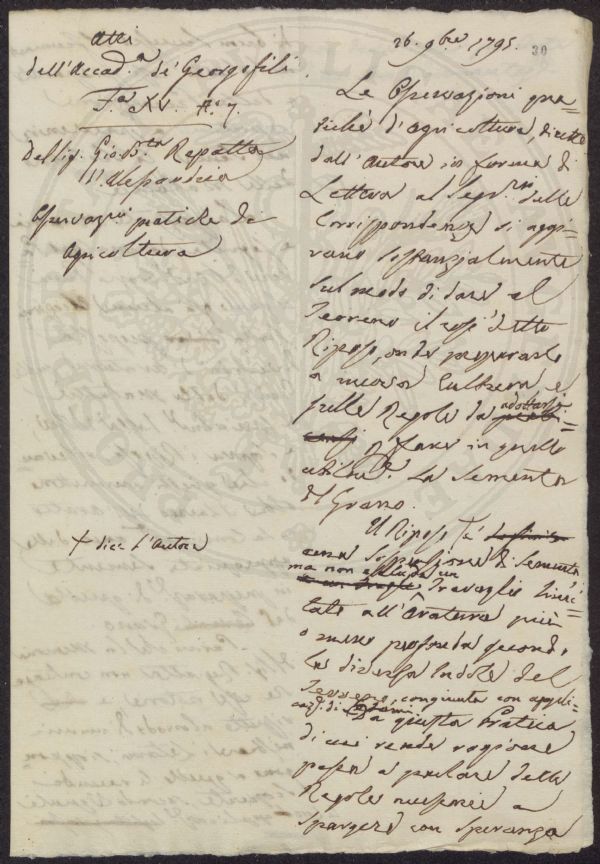 Atti
dell'Accad.a de' Georgofili
F.a XV. A.c 7.
Del Sig. Gio. B.ta Rapatta
Osservaz.ni pratiche di
Agricoltura
26. 9bre 1795.
30
Le Osservazioni pra=
tiche d'Agricoltura, dirette
dall'Autore in forma di
Lettera al Segr.rio delle
Corrispondenze si aggi=
rano sostanzialmente
sul modo di dare al
Terreno il così detto
Riposo, onde prepararlo
a nuova Cultura, e
sulle Regole da adottarsi
p. fare in quello
la Sementa
del Grano.
Il Riposo + è
una soppressione di Sementa
ma non esclude un
Travaglio limi=
tato all'Aratura più
o meno profonda second.o
la diversa Indole del
Terreno, congiunta con appli=
caz.e di
Da questa Pratica
di cui rende ragione
passa a parlare delle
Regole necessarie a
spargere con speranza
+ dice l'Autore